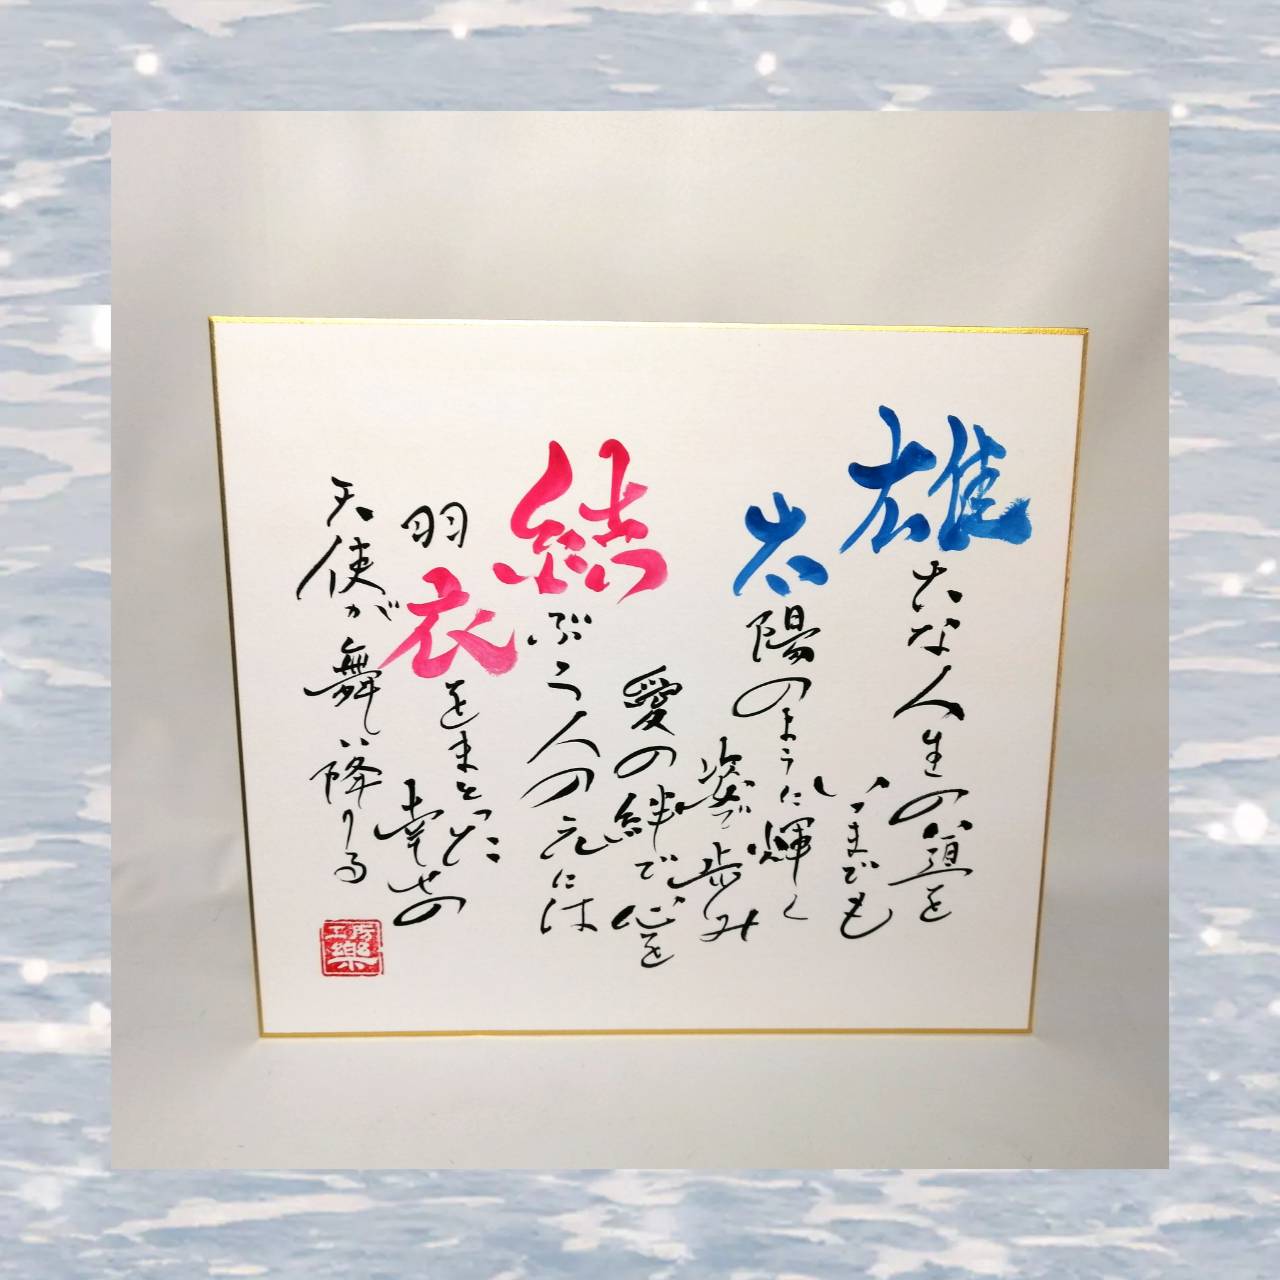 雄大な人生の道を
いつまでも
太陽のように輝く
姿で歩み
愛の絆で心を
結ぶ二人の元には
羽衣をまとった
幸せの
天使が舞い降りる
工房
樂